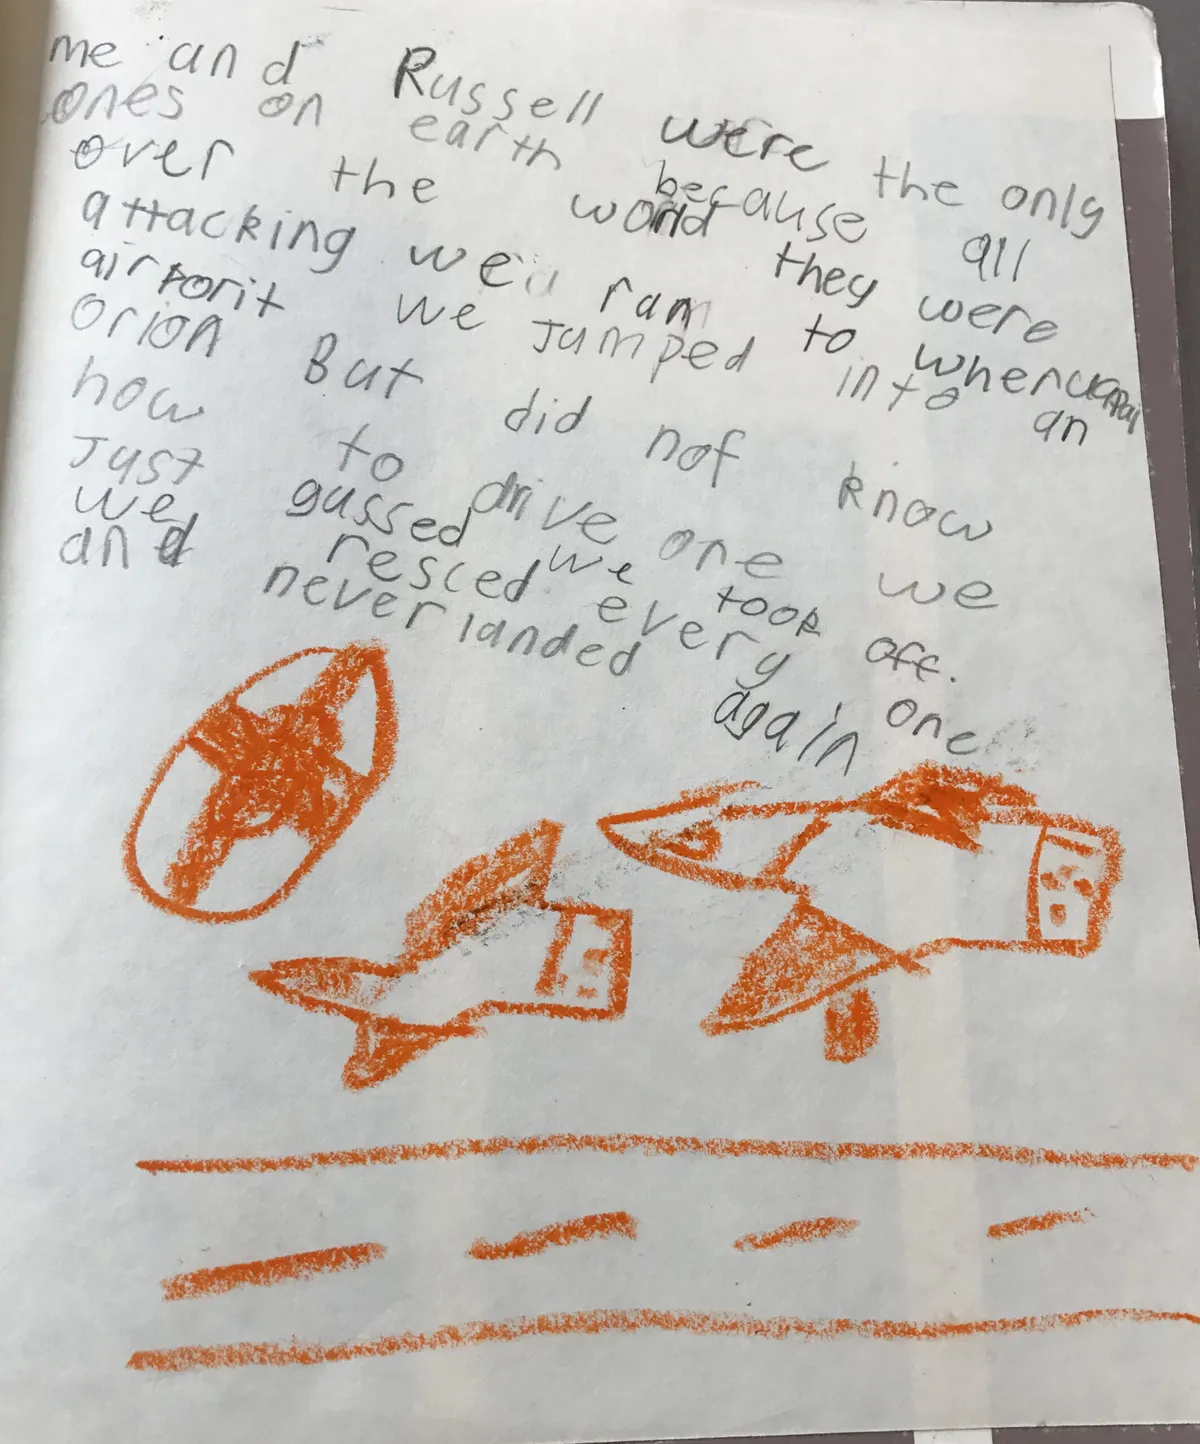 me and Russell were the only
ones on earth because all
over the world they were
attacking we ran to
airporit we Jumped into an
orion But did not know
how to drive one we
Just gussed we took off.
we resced every one
and never landed again